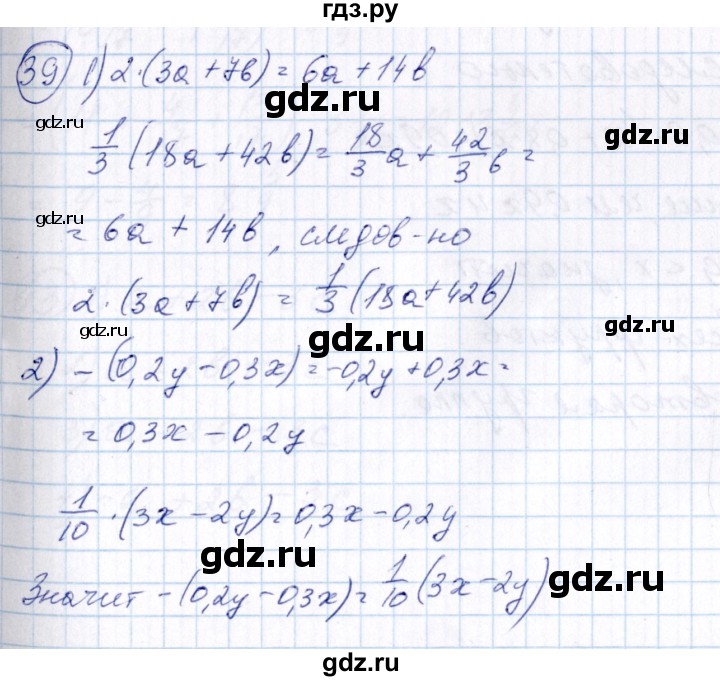 гдз.ру
39) 1) 2·(3a+7b)=6a+14b
gdz.ru
gdz.ru
1/3 (18a+42b)=18/3 a+42/3 b=
gdz.ru
=6a+14b, следов-но
2·(3a+7b)=1/3 (18a+42b)
gdz.ru
gdz.ru
2) -(0,2y-0,3x)=-0,2y+0,3x=
=0,3x-0,2y
1/10·(3x-2y)=0,3x-0,2y
gdz.ru
gdz.ru
Значит -(0,2y-0,3x)=1/10 (3x-2y)
gdz.ru